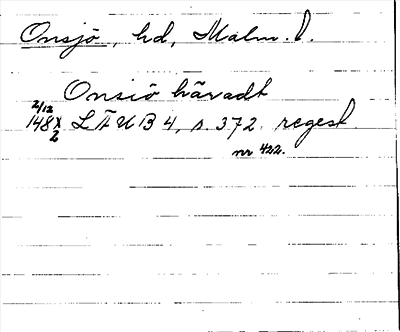 Onsjö, hd, Malm. l.
Onsiö häradt
2/12
148X L Ä U B 4, s. 372. regest
2
nr 422.